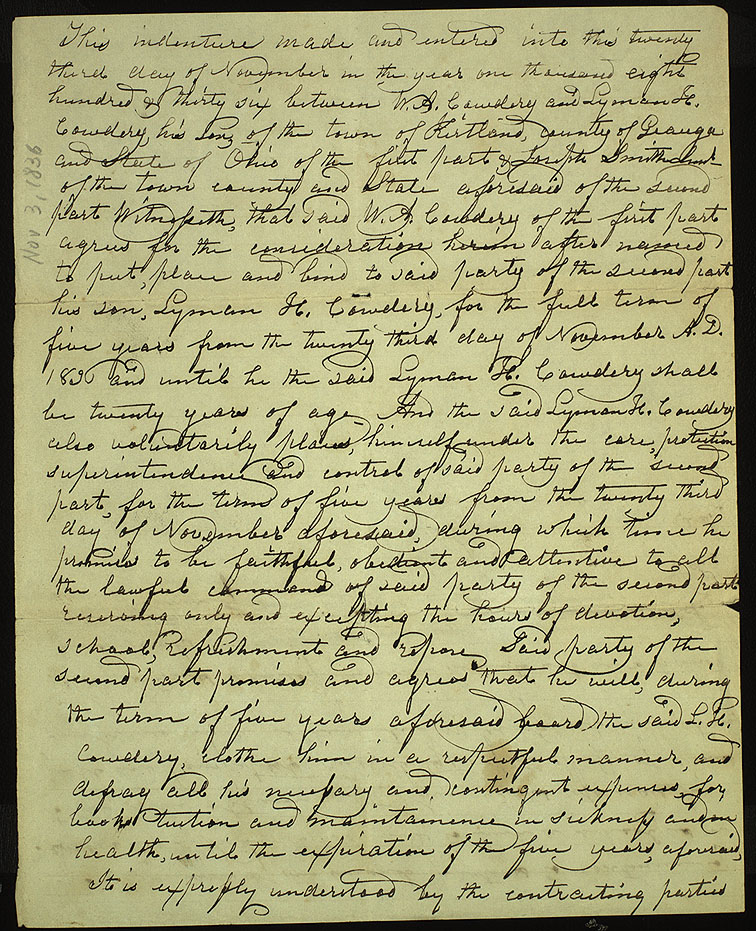 This indenture made and entered into this twenty
third day of November in the year one thousand eight
hundred & thirty six between W. A. Cowdery and Lyman H.
Cowdery, his son, of the town of Kirtland, county of Geauga
and State of Ohio of the first part & Joseph Smith
of the town county and State aforesaid of the second
part Witnesseth, that said W. A. Cowdery of the first part
agrees for the consideration herein after named
to put, place and bind to said party of the second part
his son, Lyman H. Cowdery, for the full term of
five years from the twenty third day of November A. D.
1836 and until he the said Lyman H. Cowdery shall
be twenty years of age. And the said Lyman H. Cowdery
also voluntarily places, himself under the care, protection
superintendence and control of said party of the second
part, for the term of five years from the twenty third
day of November aforesaid, during which time he
promises to be faithful, obedient and attentive to all
the lawful command of said party of the second part
reserving only and excepting the hours of devotion,
school, Refreshment and repose. Said party of the
second part promises and agrees that he will, during
the term of five years aforesaid board the said L. H.
Cowdery, clothe him in a respectful manner, and
defray all his necessary and contingent expenses, for
books tuition and maintainence in sickness and in
health, until the expiration of the five years, aforesaid,
It is expressly understood by the contracting parties
Nov 3, 1836